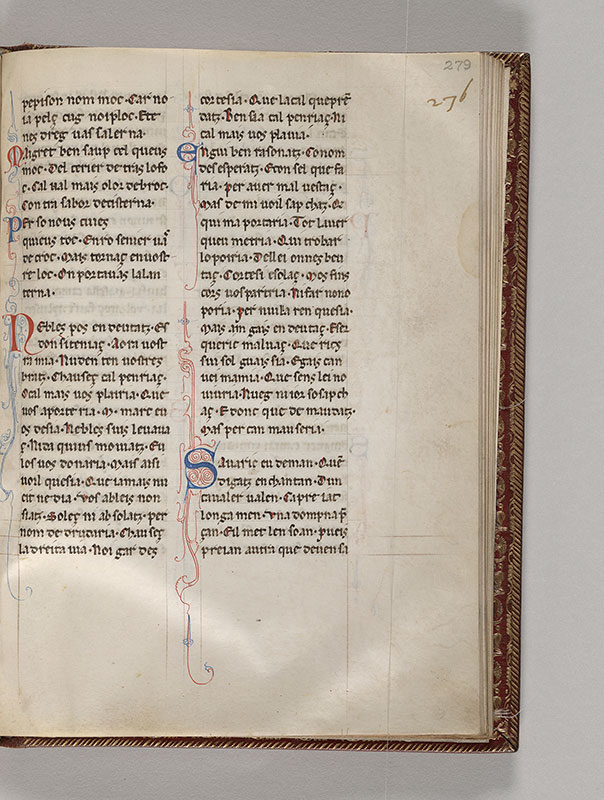 279
276
pepison nom moc· Car no
ia pelç cug noi ploc· Ete
neç dreg uas saler na·
Maigret ben saup cel queus
moc· Del cerier de tras lo fo
c· Cal ual mais olor de broc·
Con tra sabor de cisterna·
Per so nous
quieus toc· En ro semer
de croc· Mais tornaç en uost
re loc· On portauas la lan
terna·
Nebles pos en deutatz· Es
don si teniaç· Aora uost
ra mia· Nuden ten uostres
bratz· Chauseç cal penriaç·
Ocal mais uos plairia· Que
uos aporte ria· M· marc eu
os desia· Nebles suis leuaua
ç· Nuda qui us mouatz· Eu
los uos donaria· Mais aisi
uoil quesia· Que iamais nu
cit ne dia· Vos ableis non
siatz· Soleç ni ab solatz· per
nom de drudaria· Chauseç
la dreita uia· Noi gar deç
cortesia· Que la cal que
datz· Ben sia cal penriaç· Ni
cal mais uos plauia·
Engui ben rasonatz· Co nom
des esperatz· Econ sel que fa
ria· per auer mal uestaç·
Mas de mi uoil sap chaz·
qui ma portaria· Tot lauer
queu metria· Qui trobar
lo poiria· Dellei on nes ben
taç· Cortesi esolaç· Mos fins
cors uos partria· Ni far nono
poria· per nuilla ren que sia·
Mais am gaig en deutaç· Esei
queric maluaç· Que ricx
sui sol guais sia· Egais can
uei mamia· Que sens lei no
uiuria· Nueg ni ior so sap ch
aç· E donc que de maudatz·
Mas per can mau seria·
Sauaric eu deman·
digatz en chantan· Dun
caualer ualen· Capre iat
longa men· Una dompna
çan· Eil met len soan· pueis
preian autra que deuen sa